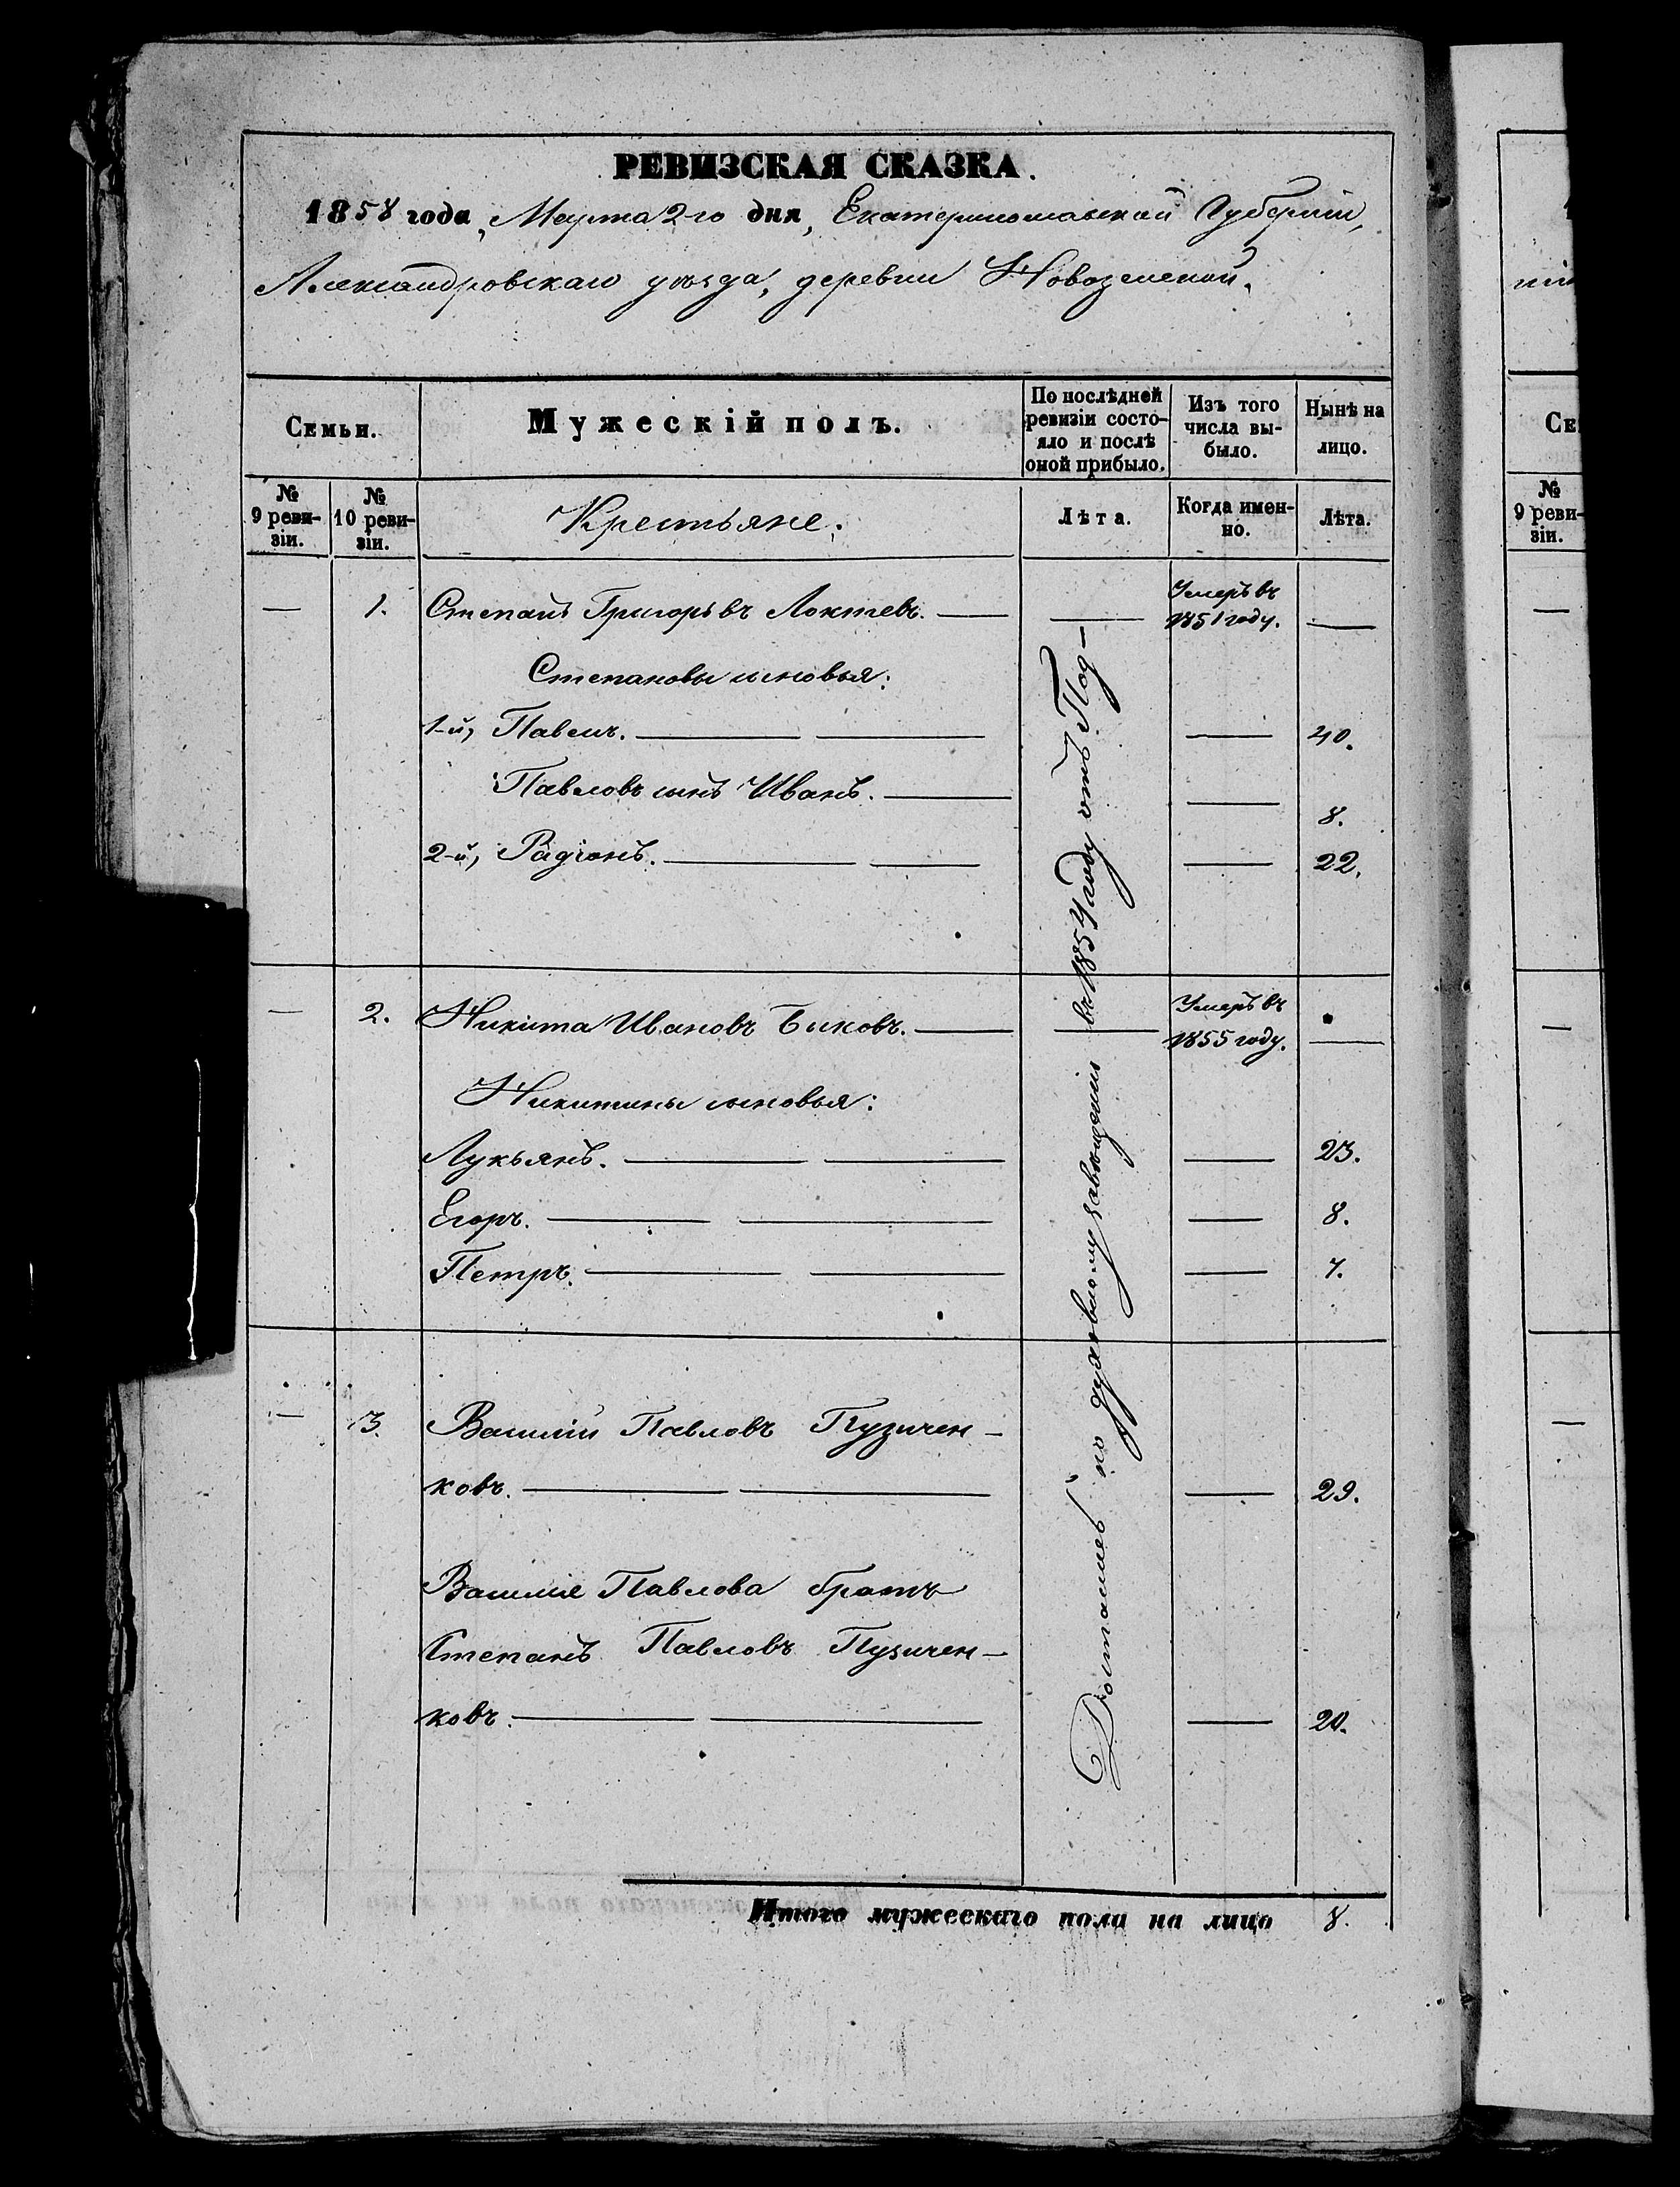 РЕВИЗСКАЯ СКАЗКА.
1858 года, Марта 2-го дня, Екатеринославской Губерніи,
Александровскаго уѣзда, деревни Новоземской.
Семьи.
Мужескій полъ.
По послѣдней ревизіи состо-
яло и послѣ
оной прибыло.
Изъ того
числа вы-
было.
Нынѣ на
лицо.
№
9 реви-
зіи.
№
10 реви-
зіи.
Крестьяне:
Лѣта.
Когда имен-
но.
Лѣта.
— 1. Степанъ Григорьевъ Локтевъ. — — Умеръ въ
1851 году. —
Степановы сыновья:
1-й, Павелъ. — — — 40.
Павловъ сынъ Иванъ. — — 8.
2-й, Радіонъ. — — — 22.
— 2. Никита Ивановъ Быковъ. — — Умеръ въ
1855 году. —
Никитины сыновья:
Лукьянъ. — — — 23.
Егоръ. — — — 8.
Петръ. — — — 7.
— 3. Василій Павловъ Пузичен-
ковъ. — — — 29.
Василія Павлова братъ
Степанъ Павловъ Пузичен-
ковъ. — — — 20.
Достались по духовному завѣщанію въ 1854 году отъ Под-
Итого мужескаго пола на лицо 8.
№
9 реви-
зіи.